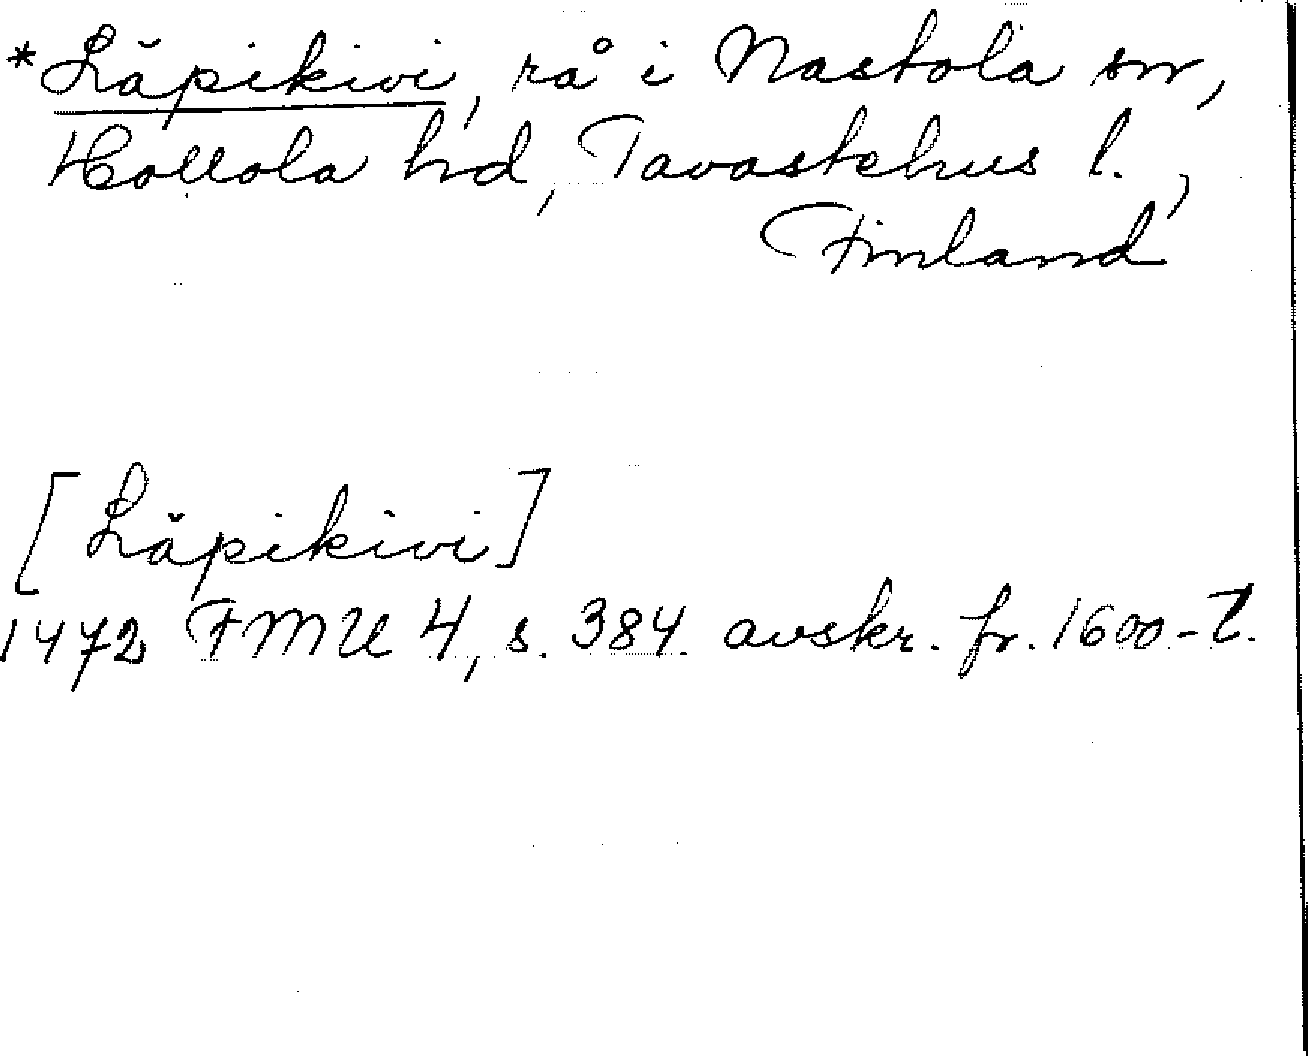 *Läpikivi, rå i Nastola sn,
Hollola hd, Tavastehus l.,
Finland
[Läpikivi]
1472 FMU 4, s. 384. avskr. fr. 1600-t.